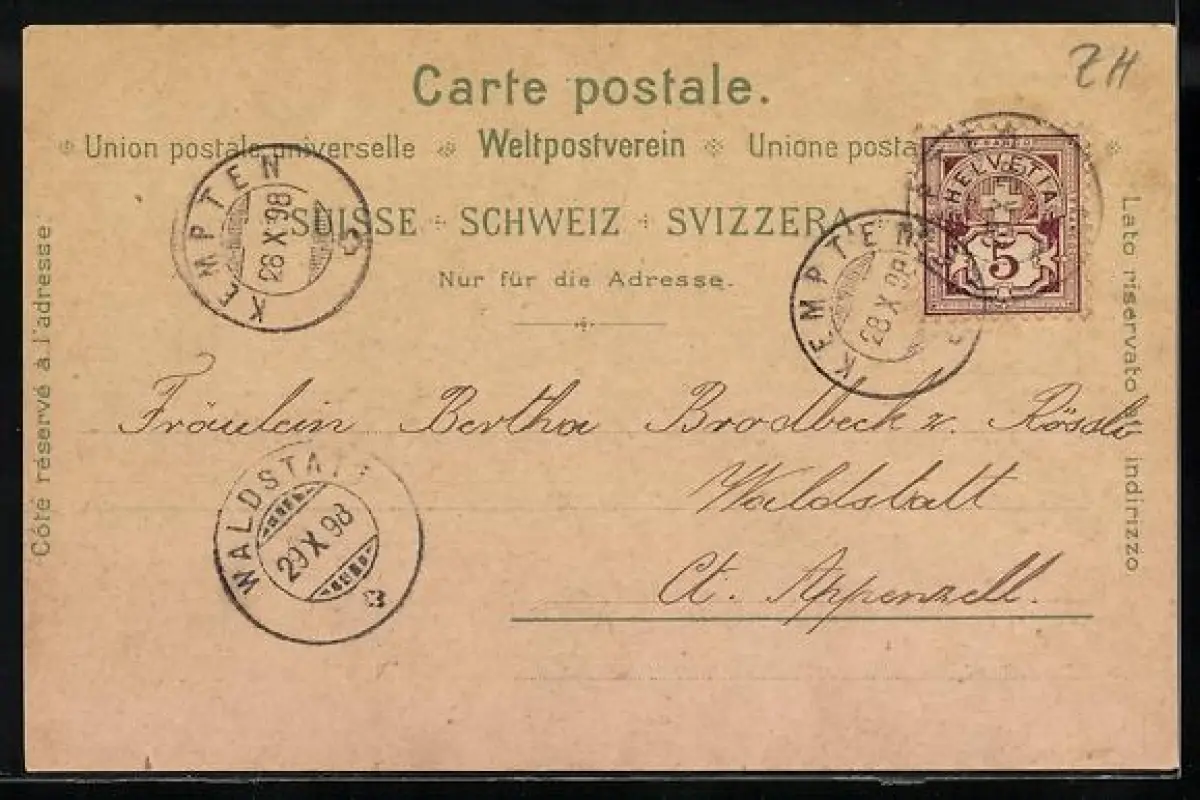 ZH
Carte postale.
Union postale universelle Weltpostverein Unione posta
SUISSE SCHWEIZ SVIZZERA
Nur für die Adresse.
Côté réservé à l'adresse.
Lato riservato all' indirizzo
KEMPTEN
28 X 98
KEMPTEN
28 X 98
HELVETIA
5
Fräulein Bertha Brodbeck z. Rössli
Waldstatt
Ct. Appenzell.
WALDSTATT
29 X 98